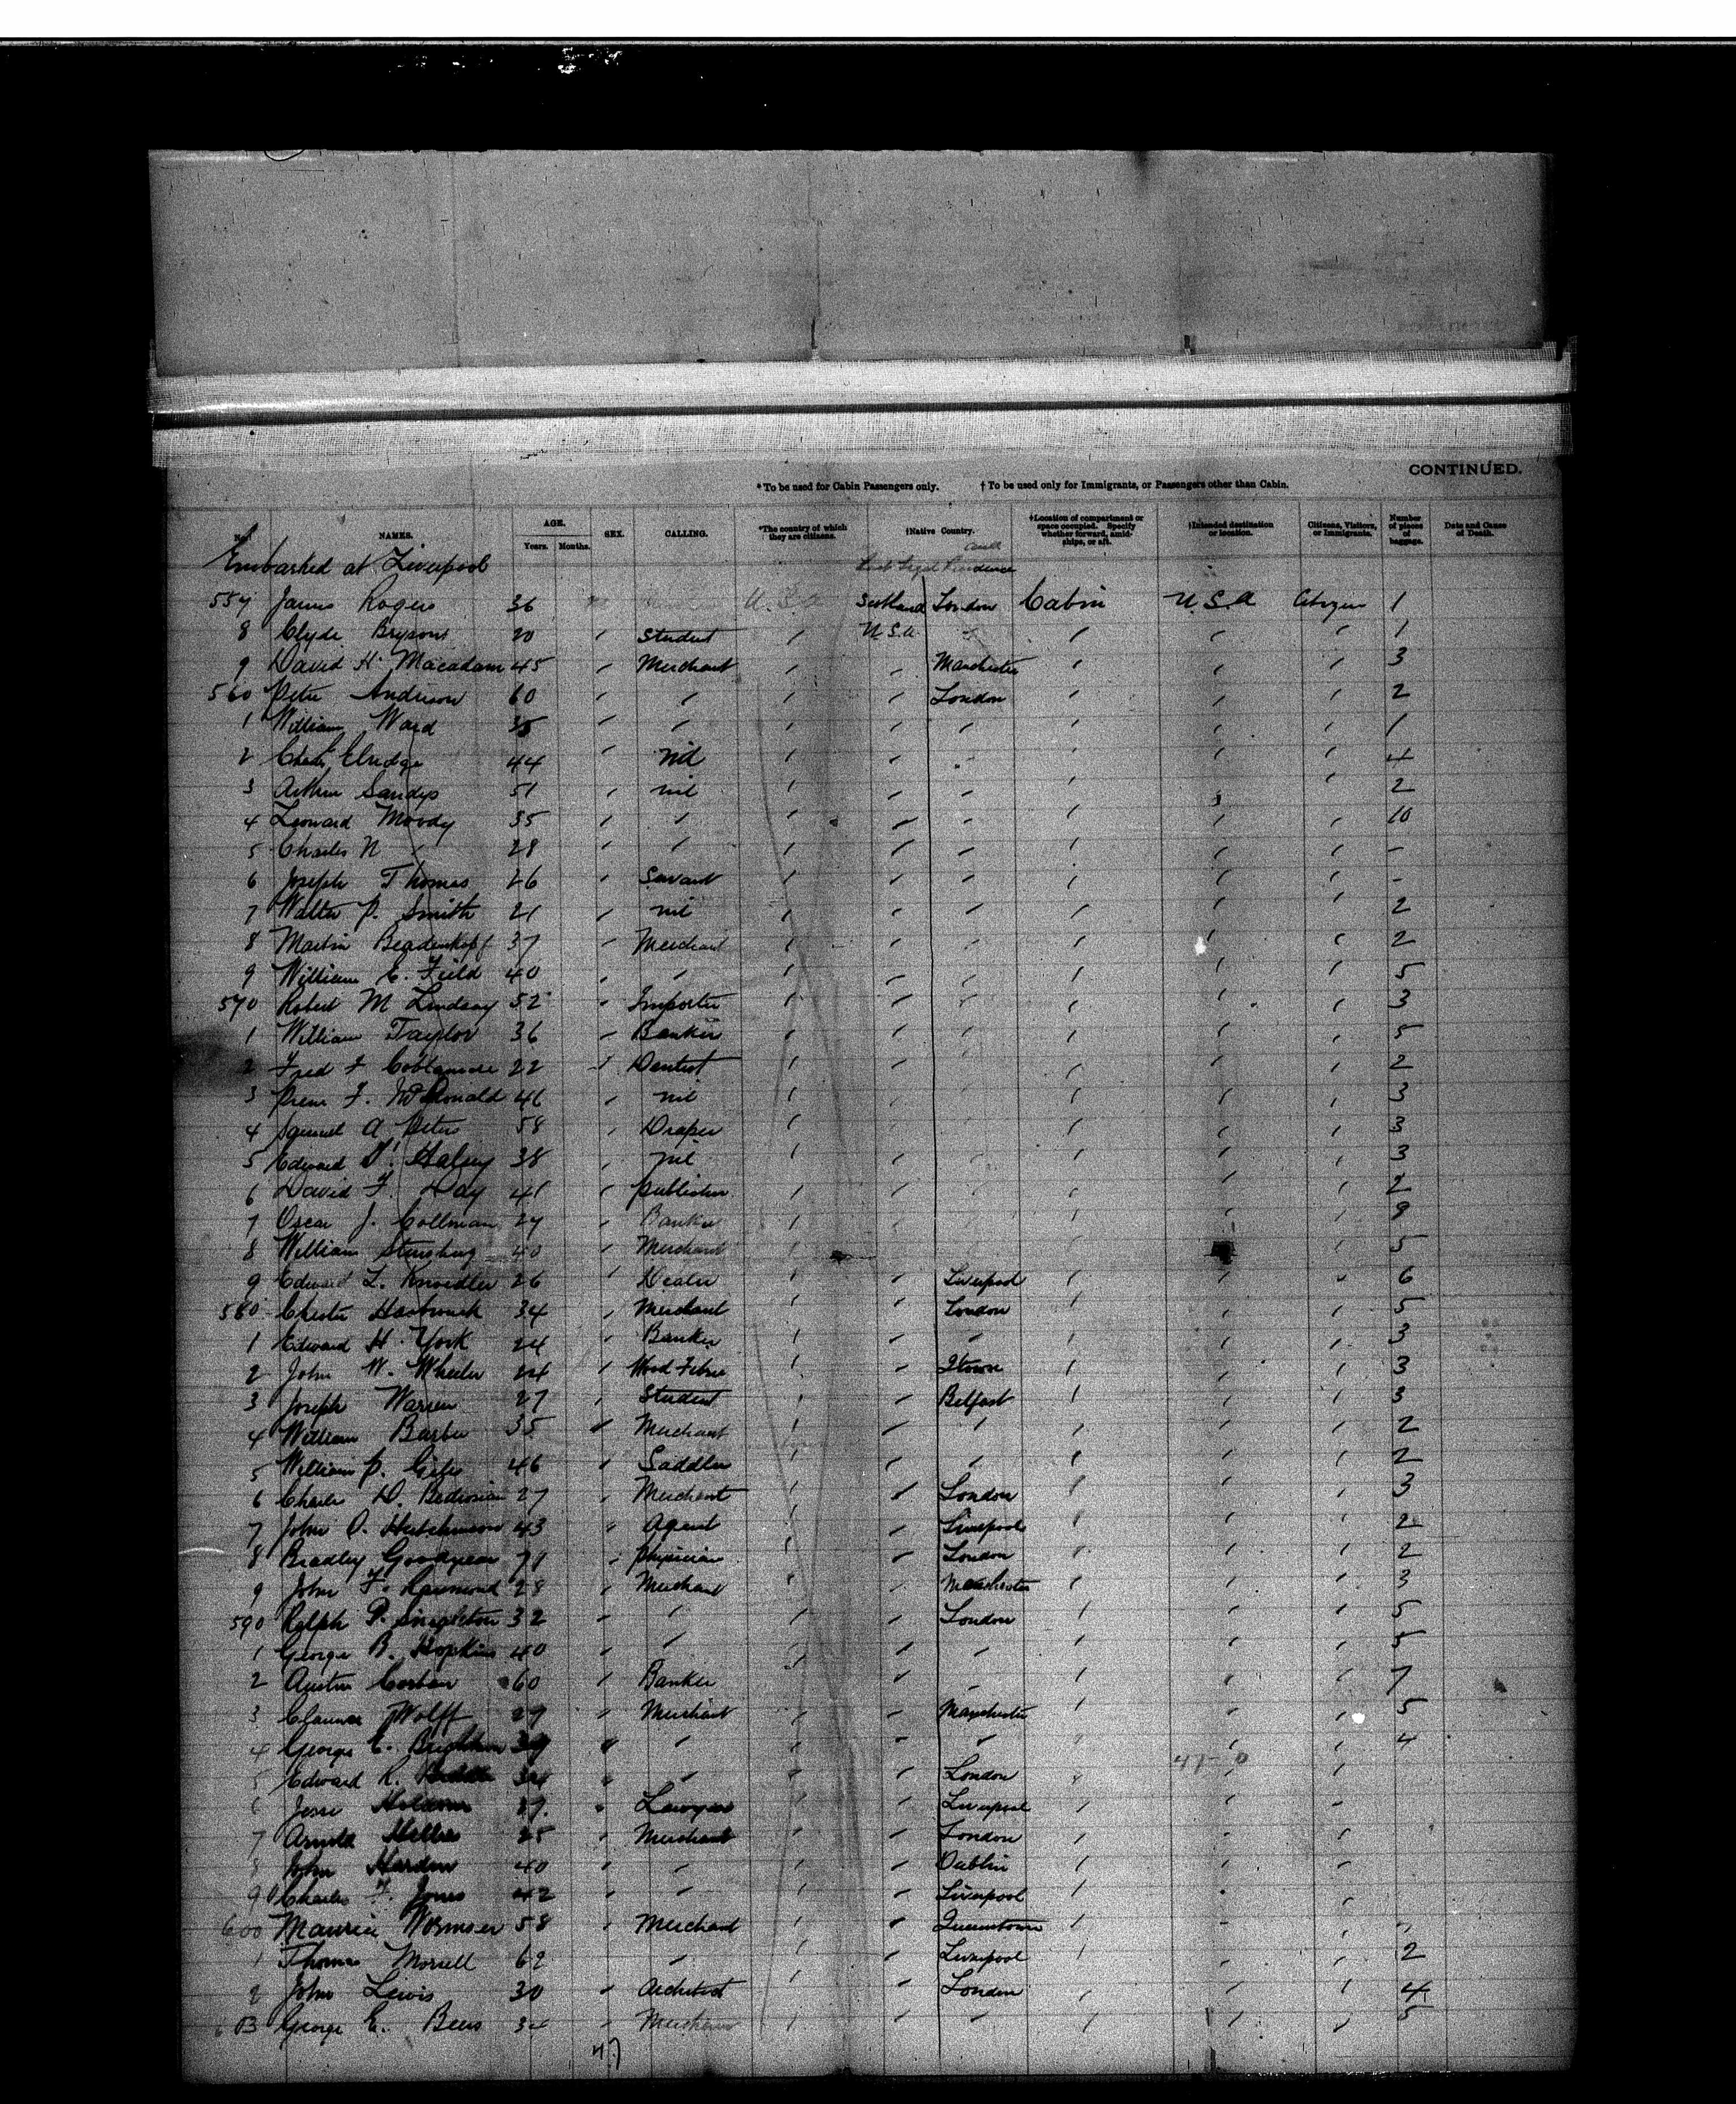 CONTINUED.
*To be used for Cabin Passengers only. †To be used only for Immigrants, or Passengers other than Cabin.
No. NAMES. AGE. Years. Months. SEX. CALLING. *The country of which they are citizens. †Native Country. †Location of compartment or space occupied. Specify whether forward, amidships, or aft. †Intended destination or location. Citizens, Visitors, or Immigrants. Number of pieces of baggage. Date and Cause of Death.
Embarked at Liverpool Last Legal Residence
557 James Rogers 36 U.S.A Scotland London Cabin U.S.A Citizen 1
8 Clyde Bryson 20 " Student " U.S.A. " " " " 1
9 David H. Macadam 45 " Merchant " " Manchester " " " 3
560 Peter Anderson 60 " " " " London " " " 2
1 William Ward 35 " " " " " " " " 1
2 Elridge 44 " nil " " " " " " 4
3 Arthur Sandys 51 " nil " " " " " " 2
4 Leonard Moody 35 " " " " " " " " 10
5 Charles N " 28 " " " " " " " " -
6 Joseph Thomas 26 " Servant " " " " " " -
7 Walter P. Smith 21 " nil " " " " " " 2
8 Martin Beadenkopf 37 " Merchant " " " " " " 2
9 William E. Field 40 " " " " " " " " 5
570 Robert M Lindsay 52 " Importer " " " " " " 3
1 William Taylor 36 " Banker " " " " " " 5
2 Fred F 22 " Dentist " " " " " " 2
3 F. McDonald 46 " nil " " " " " " 3
4 Samuel A Peters 58 " Draper " " " " " " 3
5 Edward Halsey 38 " nil " " " " " " 3
6 David F. Day 41 " Publisher " " " " " " 2
7 Oscar J. Collman 27 " Banker " " " " 9
8 William 40 " Merchant " " " 5
9 Edward L. Knoedler 26 " Dealer " " Liverpool " " " 6
580 Chester Hasbrouck 34 " Merchant " " London " " " 5
1 Edward H. York 24 " Banker " " " " " " 3
2 John W. Wheeler 24 " Wood Fibre " " Qtown " " " 3
3 Joseph Warren 27 " Student " " Belfast " " " 3
4 William Barber 35 " Merchant " " " " " " 2
5 William P. 46 " Saddler " " " " " " 2
6 Charles D. Bedrosian 27 " Merchant " " London " " " 3
7 John O. Hutchinson 43 " Agent " " Liverpool " " " 2
8 Bradley Goodyear 71 " Physician " " London " " " 2
9 John F. 28 " Merchant " " Manchester " " " 3
590 Ralph P. Singleton 32 " " " " London " " " 5
1 George B. Hopkins 40 " " " " " " " " 5
2 Austin Corbin 60 " Banker " " " " " " 7
3 Wolff 27 " Merchant " " Manchester " " " 5
4 George C. " " " " " " " " 4
5 Edward R. 34 " " " " London " "
6 Jesse " Lawyer " " Liverpool " " "
7 Arnold Heller 25 " Merchant " " London " " "
8 John Harden 40 " " " " Dublin " " "
9 Charles F. Jones 42 " " " " Liverpool " " "
600 Maurice Wormser 58 " Merchant " " Queenstown " " "
1 Thomas Morrell 62 " " " Liverpool " " " 2
2 John Lewis 30 " Architect " " London " " " 4
603 George E. Beers 34 " Merchant " " " " " " 5
47